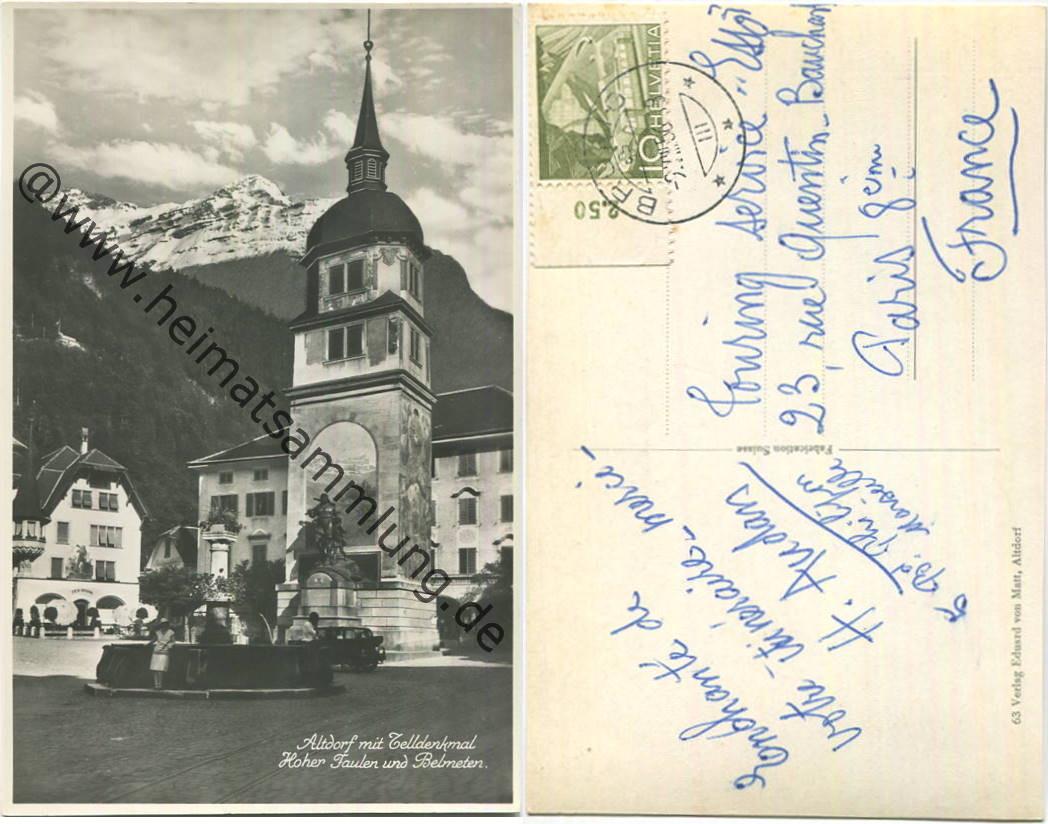 Altdorf mit Telldenkmal
Hoher Faulen und Belmeten.
www.heimatsammlung.de
@
HELVETIA
10
2.50
III
Touring service "Esso"
23, rue Quentin-Bauchart
Paris 8ème
France
Fabrication Suisse
votre itinéraire - merci -
H. Audan
Bd.
Marseille
63 Verlag Eduard von Matt, Altdorf